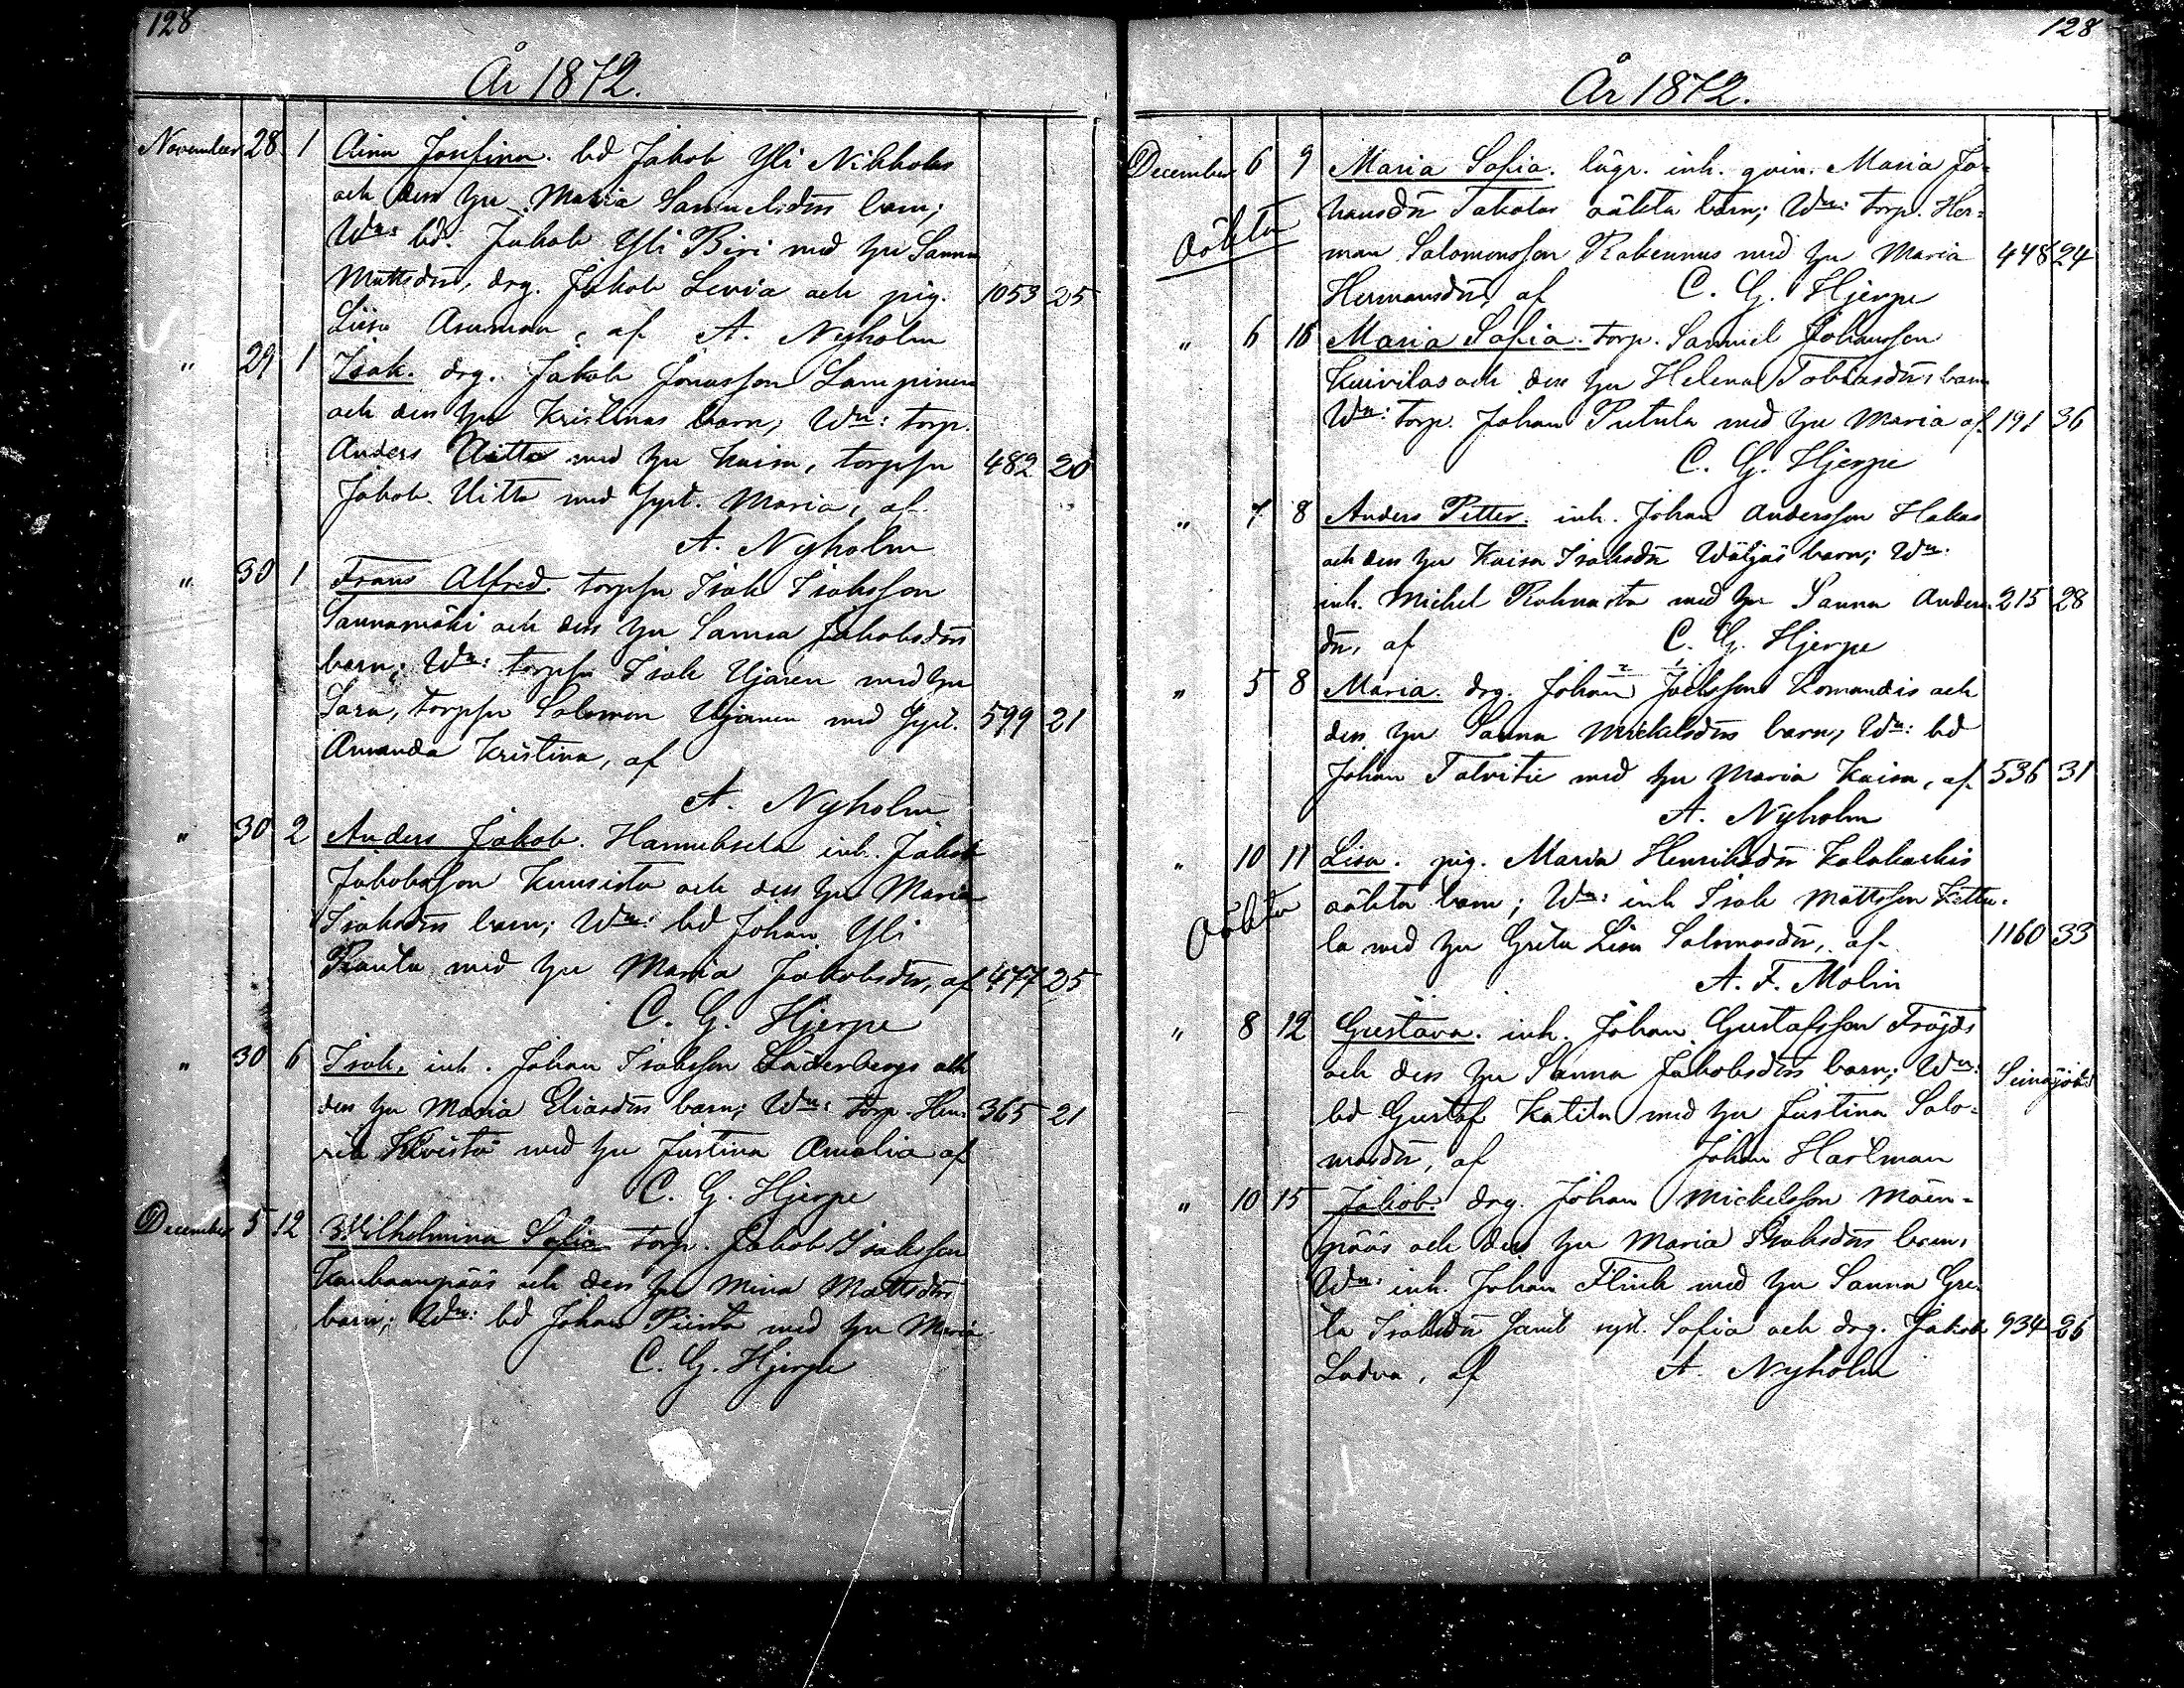 128
År 1872.
November 28 1 Aina Josefina. bd Jakob Yli Nikkolas
och dess hu Maria Samuelsdrs barn;
Wn: bd. Jakob Yli Biri med hu Sanna
Mattsdr, drg. Jakob Levia och pig. 1053 25
Liisa Asunmaa, af A. Nyholm
" 29 1 Isak. drg. Jakob Jonasson Lampinens
och dess hu Kristinas barn; Wn: torp.
Anders Uitto med hu Kaisa, torpsn 482 20
Jakob Uitto med syst. Maria, af
A. Nyholm
" 30 1 Frans Alfred. torpsn Isak Isaksson
Sannamäki och dess hu Sanna Jakobsdrs
barn; Wn: torpsn Isak Ujainen med hu
Sara, torpsn Salomon Ujainen med syst. 599 21
Amanda Kristina, af
A. Nyholm
" 30 2 Anders Jakob. Hannuksela inh. Jakob
Jakobsson Kuusisto och dess hu Maria
Isaksdrs barn; Wn: bd Johan Yli
Rauta med hu Maria Jakobsdr, af 477 25
C. G. Hjerpe
" 30 6 Isak. inh. Johan Isaksson Söderbergs och
dess hu Maria Eliasdrs barn; Wn: torp. Hen- 365 21
rik Kivistö med hu Justina Amalia af
C. G. Hjerpe
December 5 12 Wilhelmina Sofia torp. Jakob Isaksson
Kauhaanpääs och dess hu Mina Mattsdrs
barn; Wn: bd Johan Piirto med hu Maria
C. G. Hjerpe
128
År 1872.
December 6 9 Maria Sofia. lägr. inh. qvin. Maria Jo-
hansdr Takalas oäkta barn; Wn: torp. Her-
oäkta
man Salomonsson Rakennus med hu Maria 448 24
Hermansdr, af C. G. Hjerpe
" 6 16 Maria Sofia. torp. Samuel Johansson
Kuivilas och dess hu Helena Tobiasdrs barn
Wn: torp. Johan Putula med hu Maria af 191 36
C. G. Hjerpe
" 7 8 Anders Petter. inh. Johan Andersson Hakas
och dess hu Kaisa Isaksdr Wäljäs barn; Wn:
inh. Mickel Rahnasto med hu Sanna Anders- 215 28
dr, af C. G. Hjerpe
" 5 8 Maria. drg. Johan Joelsson Komandis och
dess hu Sanna Mickelsdrs barn; Wn: bd
Johan Talvitie med hu Maria Kaisa, af 536 31
A. Nyholm
" 10 11 Lisa. pig. Maria Henriksdr Kalakoskis
oäkta oäkta barn; Wn: inh Isak Mattsson Kettu-
la med hu Greta Lisa Salomosdr, af 1160 33
A. F. Molin
" 8 12 Gustava. inh. Johan Gustafsson Fröjds
och dess hu Sanna Jakobsdrs barn; Wn: Seinäjoki
bd Gustaf Katila med hu Justina Salo-
mosdr, af Johan Hartman
" 10 15 Jakob. drg. Johan Mickelsson Mäen-
pääs och dess hu Maria Isaksdrs barn;
Wn: inh. Johan Flink med hu Sanna Gre-
ta Isaksdr samt syst. Sofia och drg. Jakob 934 26
Ladva, af A. Nyholm